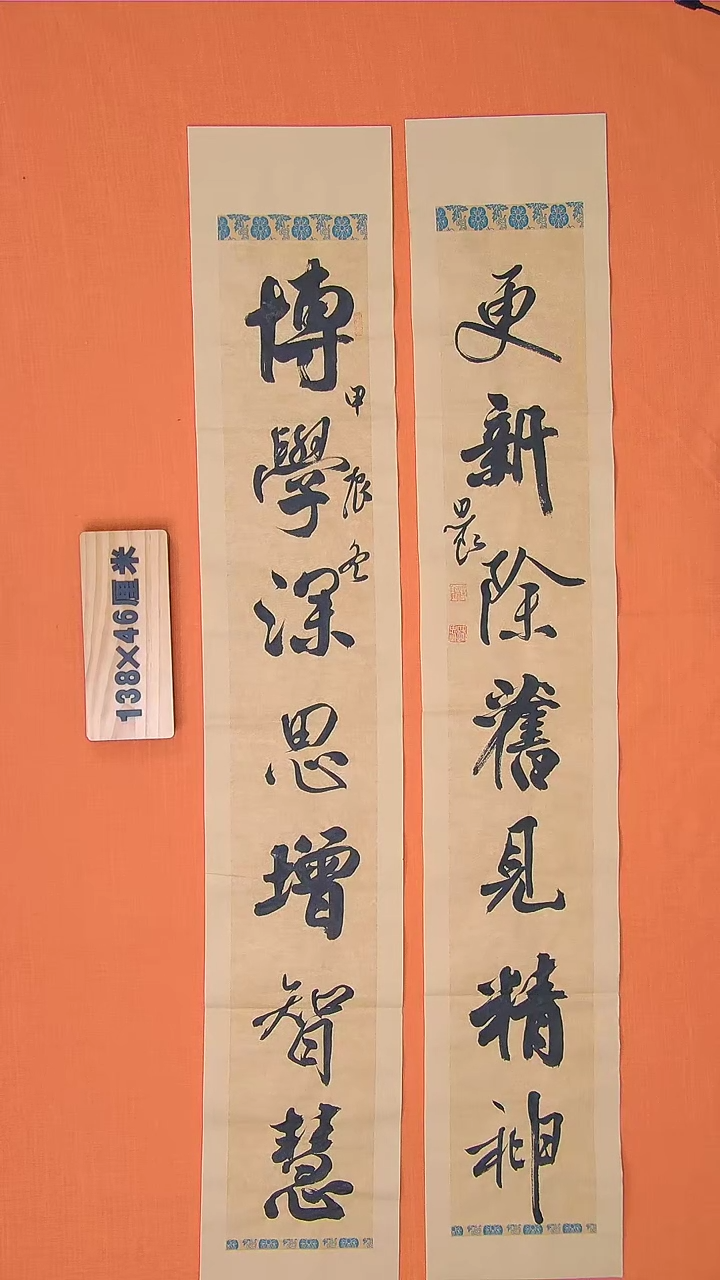 博學深思增智慧
甲辰冬
更新除舊見精神
138×46厘米